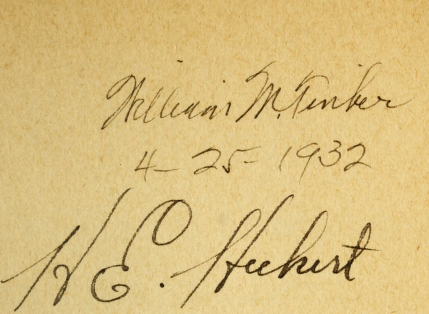 William M. Timber
4-25-1932
H E. Heckert